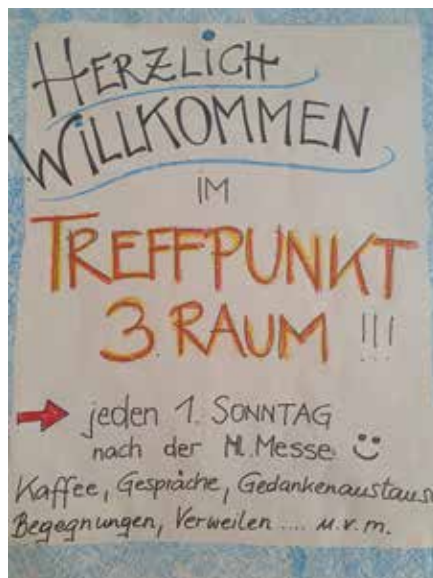 HERZLICH
WILLKOMMEN
IM
TREFFPUNKT
3. RAUM !!!
jeden 1. SONNTAG
nach der Hl. Messe
Kaffee, Gespräche, Gedankenaustaus
Begegnungen, Verweilen .... u.v.m.